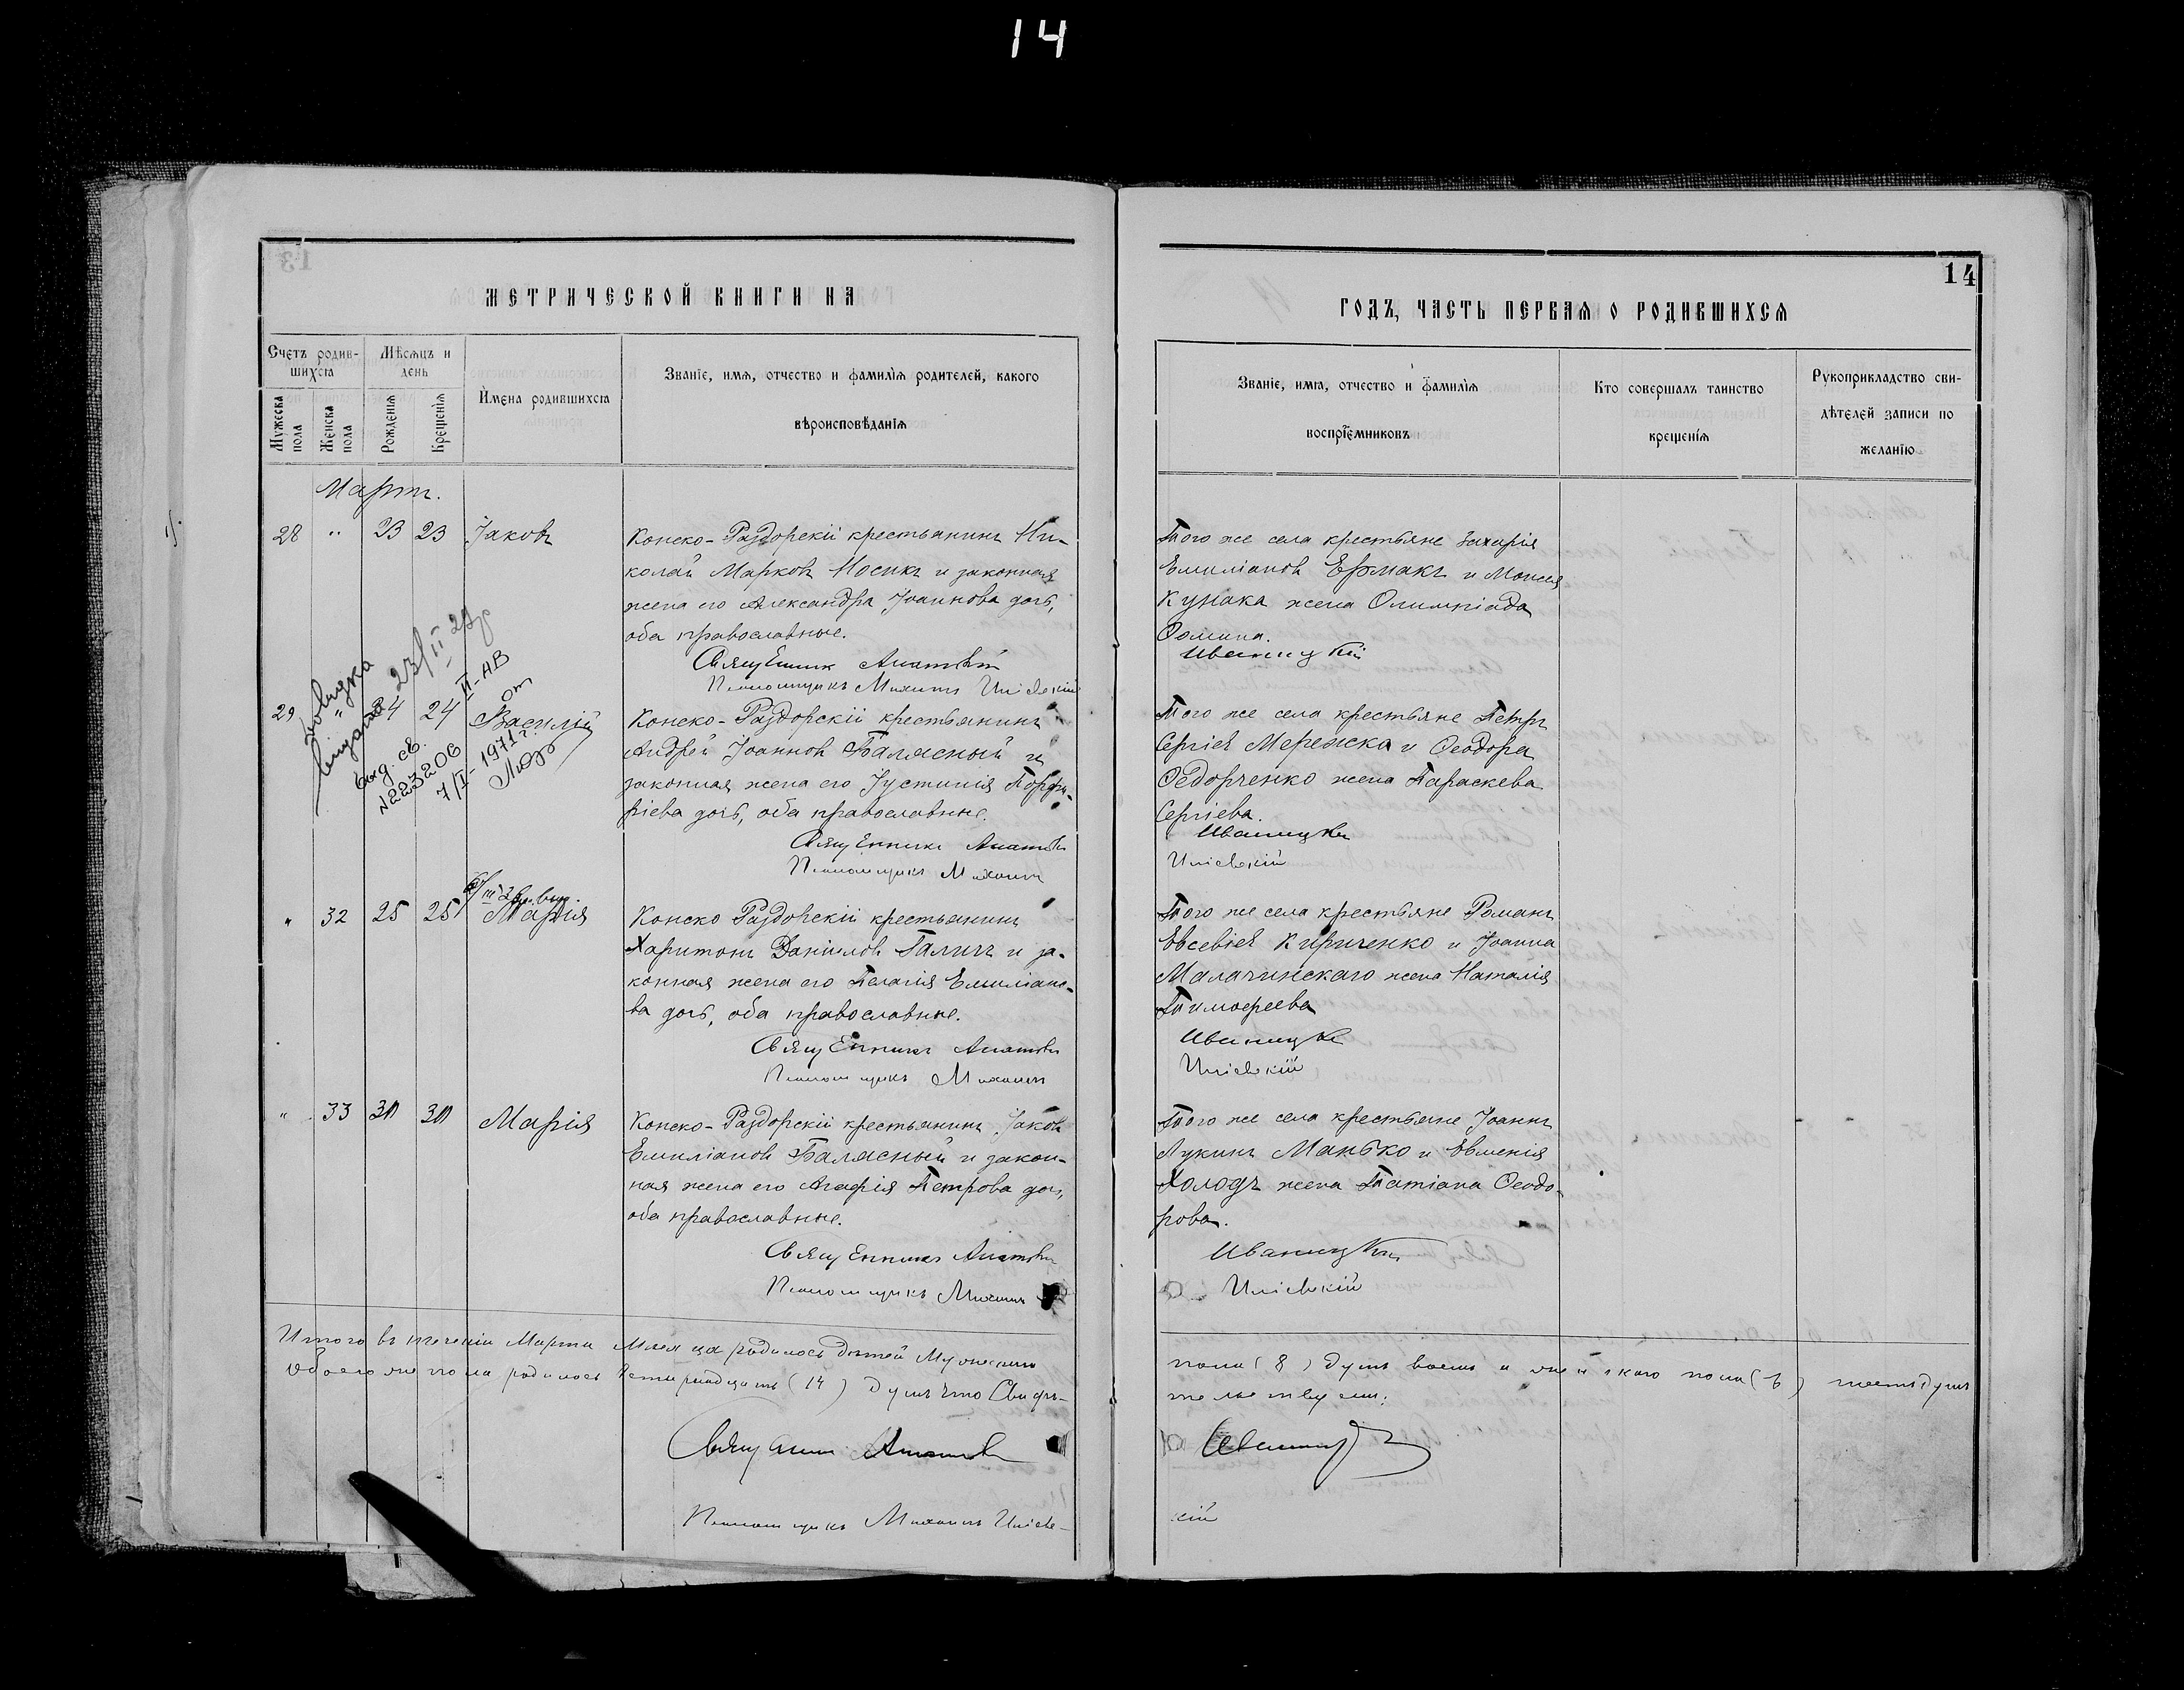 14
МЕТРИЧЕСКОЙ КНИГИ НА
Счетъ родив-
шихся
Мѣсяцъ и
день
Мужеска
пола
Женска
пола
Рожденія
Крещенія
Имена родившихся
Званіе, имя, отчество и фамилія родителей, какого
вѣроисповѣданія
Мартъ.
28 " 23 23 Іаковъ
Конско-Раздорскій крестьянинъ Ни-
колай Марковъ Носикъ и законная
жена его Александра Іоаннова дочь,
оба православные.
Священникъ
Псаломщикъ Михаилъ
29 " 24 24 Василій
довідка
видана
23/II 29р
вид. св.
II-АВ
№223206 от
7/II-1971г.
Конско-Раздорскій крестьянинъ
Андрей Іоанновъ Балясный и
законная жена его Іустинія Порфи-
ріева дочь, оба православные.
Священникъ
Псаломщикъ Михаилъ
" 32 25 25 Марія
Конско Раздорскій крестьянинъ
Харитонъ Даніиловъ Галичъ и за-
конная жена его Пелагія Емиліано-
ва дочь, оба православные.
Священникъ
Псаломщикъ Михаилъ
" 33 30 30 Марія
Конско-Раздорскій крестьянинъ Іаковъ
Емиліановъ Балясный и закон-
ная жена его Агафія Петрова дочь,
оба православные.
Священникъ
Псаломщикъ Михаилъ
Итого въ теченіи Марта Месяца родилось дѣтей Мужескаго
обоего же пола родилось Четырнадцать (14) душъ что Свидѣ-
Священникъ
Псаломщикъ Михаилъ
14
ГОДЪ, ЧАСТЬ ПЕРВАЯ О РОДИВШИХСЯ
Званіе, имя, отчество и фамилія
воспріемниковъ
Кто совершалъ таинство
крещенія
Рукоприкладство сви-
дѣтелей записи по
желанію
Того же села крестьяне Захарія
Емиліановъ Ермакъ и Моисея
Кулака жена Олимпіада
Фомина.
Иваницкій
Того же села крестьяне Петръ
Сергіевъ Мережка и Ѳеодора
Ѳедорченко жена Параскева
Сергіева.
Иваницкій
Того же села крестьяне Романъ
Евсевіевъ Кириченко и Іоанна
Малачинскаго жена Наталія
Тимофеева
Иваницкій
Того же села крестьяне Іоаннъ
Лукинъ Манько и Евменія
Холодъ жена Татіана Ѳеодо-
рова.
Иваницкій
пола (8) душъ восемь и женскаго пола (6) шесть душъ
тельствуемъ:
Иваницкій
кій